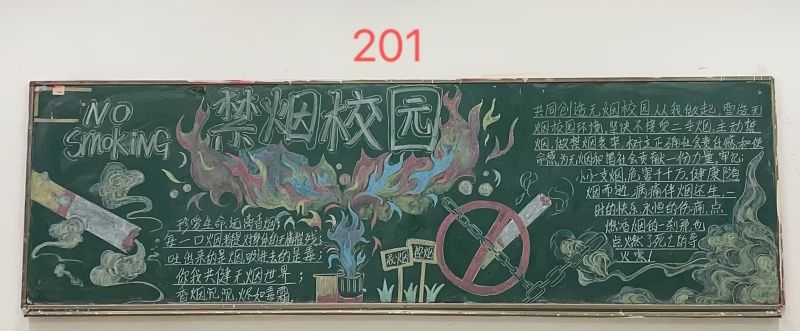 201
NO
SMOKING
禁烟校园
珍爱生命,远离香烟;
每一口烟都是对身份的无情摧残;
吐出来的是烟吸进去的是毒;
你我共健无烟世界;
香烟沉沉,烬如毒霜
戒烟
控烟
共同创造无烟校园,从我做起,营造无
烟校园环境,坚决不接受二手烟,主动禁
烟,做禁烟表率,树立正确社会责任感和使
命感,为无烟和谐社会贡献一份力量,牢记:
小小一支烟,危害千千万,健康随
烟而逝,病痛伴烟还生,一
时的快乐,永恒的伤痛,点
燃香烟的一刹那,也
点燃了死亡的导
火索!